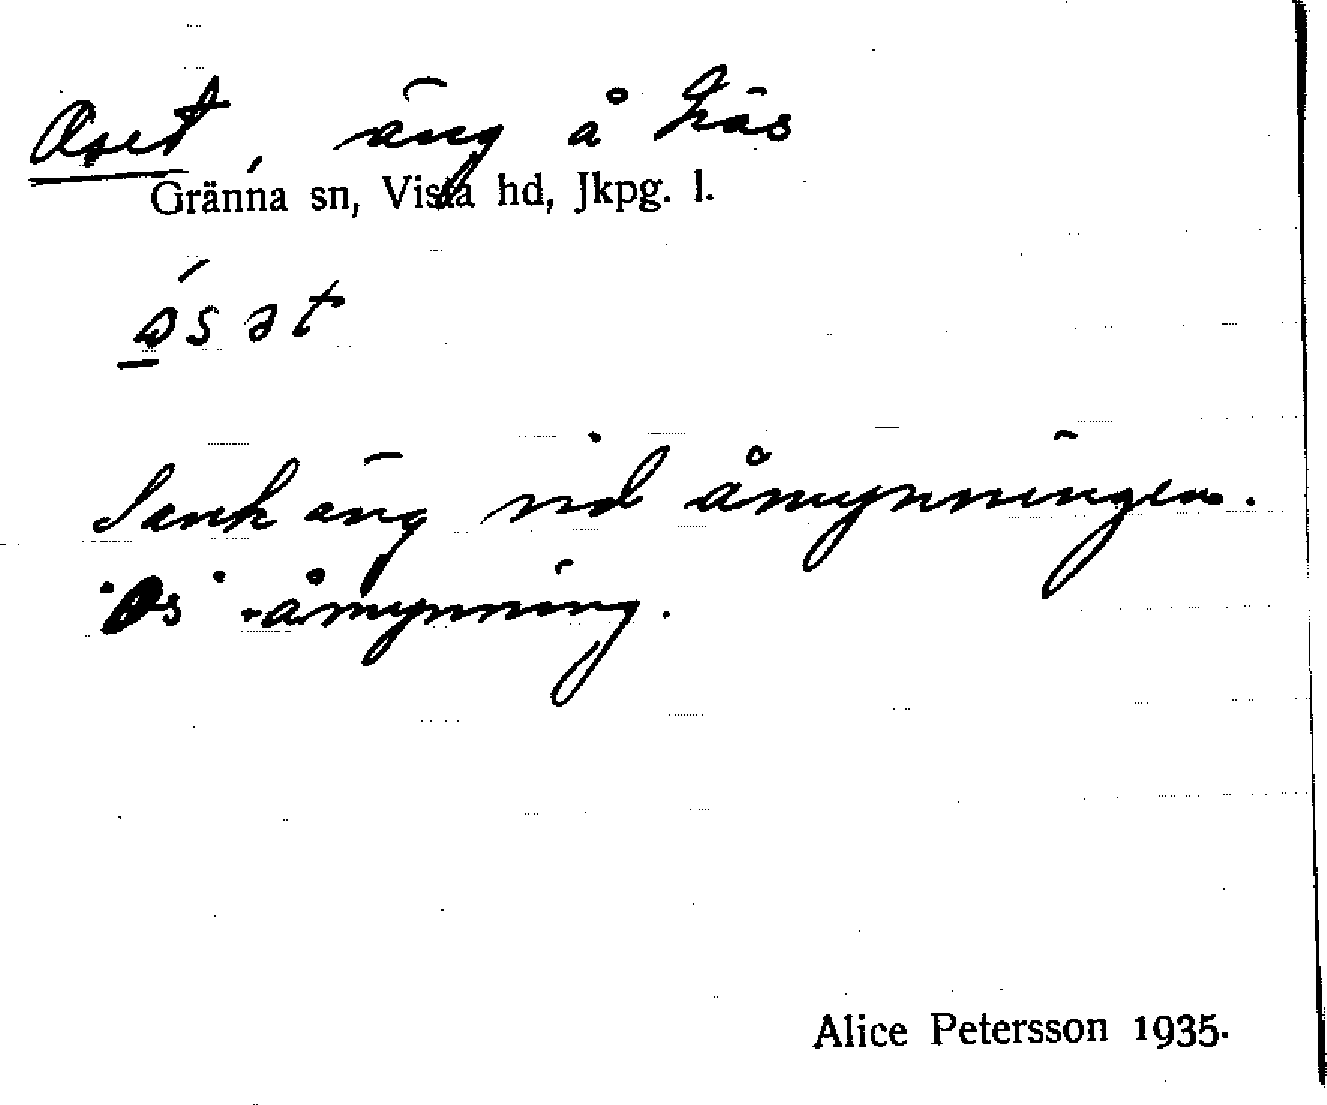 Oset, äng å Näs
Gränna sn, Vista hd, Jkpg. l.
ọsət
Sank äng vid åmynningen.
"Os" - åmynning.
Alice Petersson 1935.